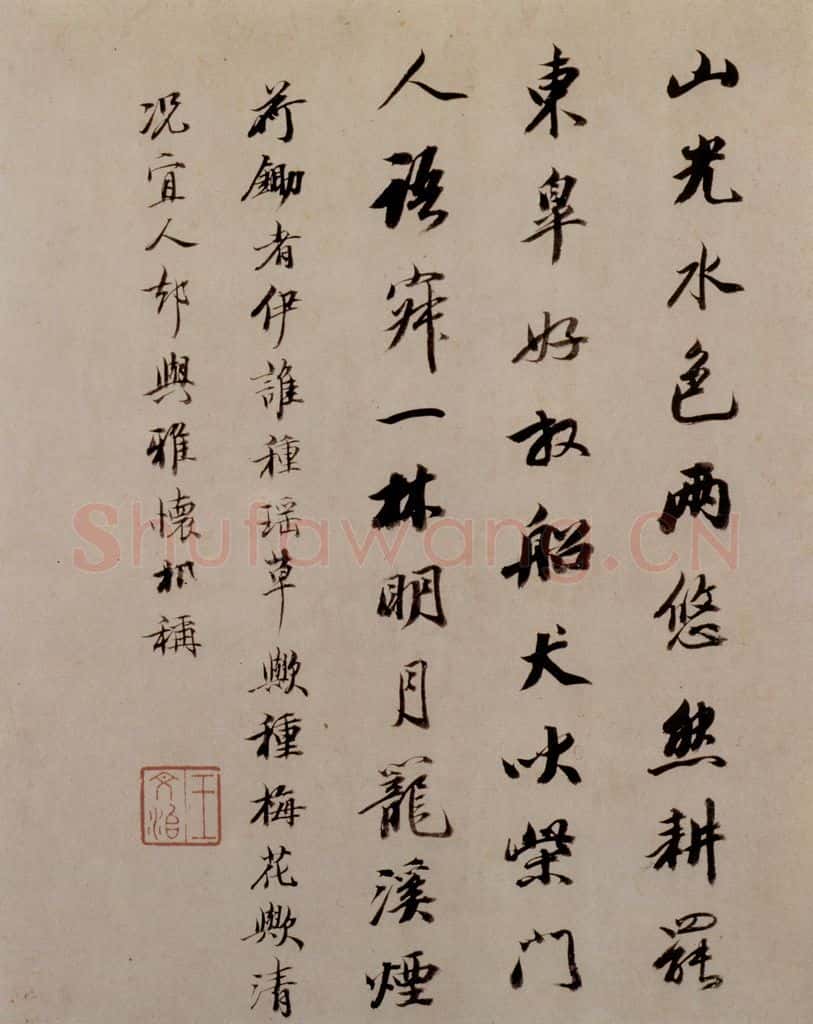 山光水色兩悠然耕罷
東皐好放船犬吠柴門
人語寂一林明月籠溪煙
荷鋤者伊誰種瑤草歟種梅花歟清
況宜人却與雅懷相稱
王文治
Shufawang.CN